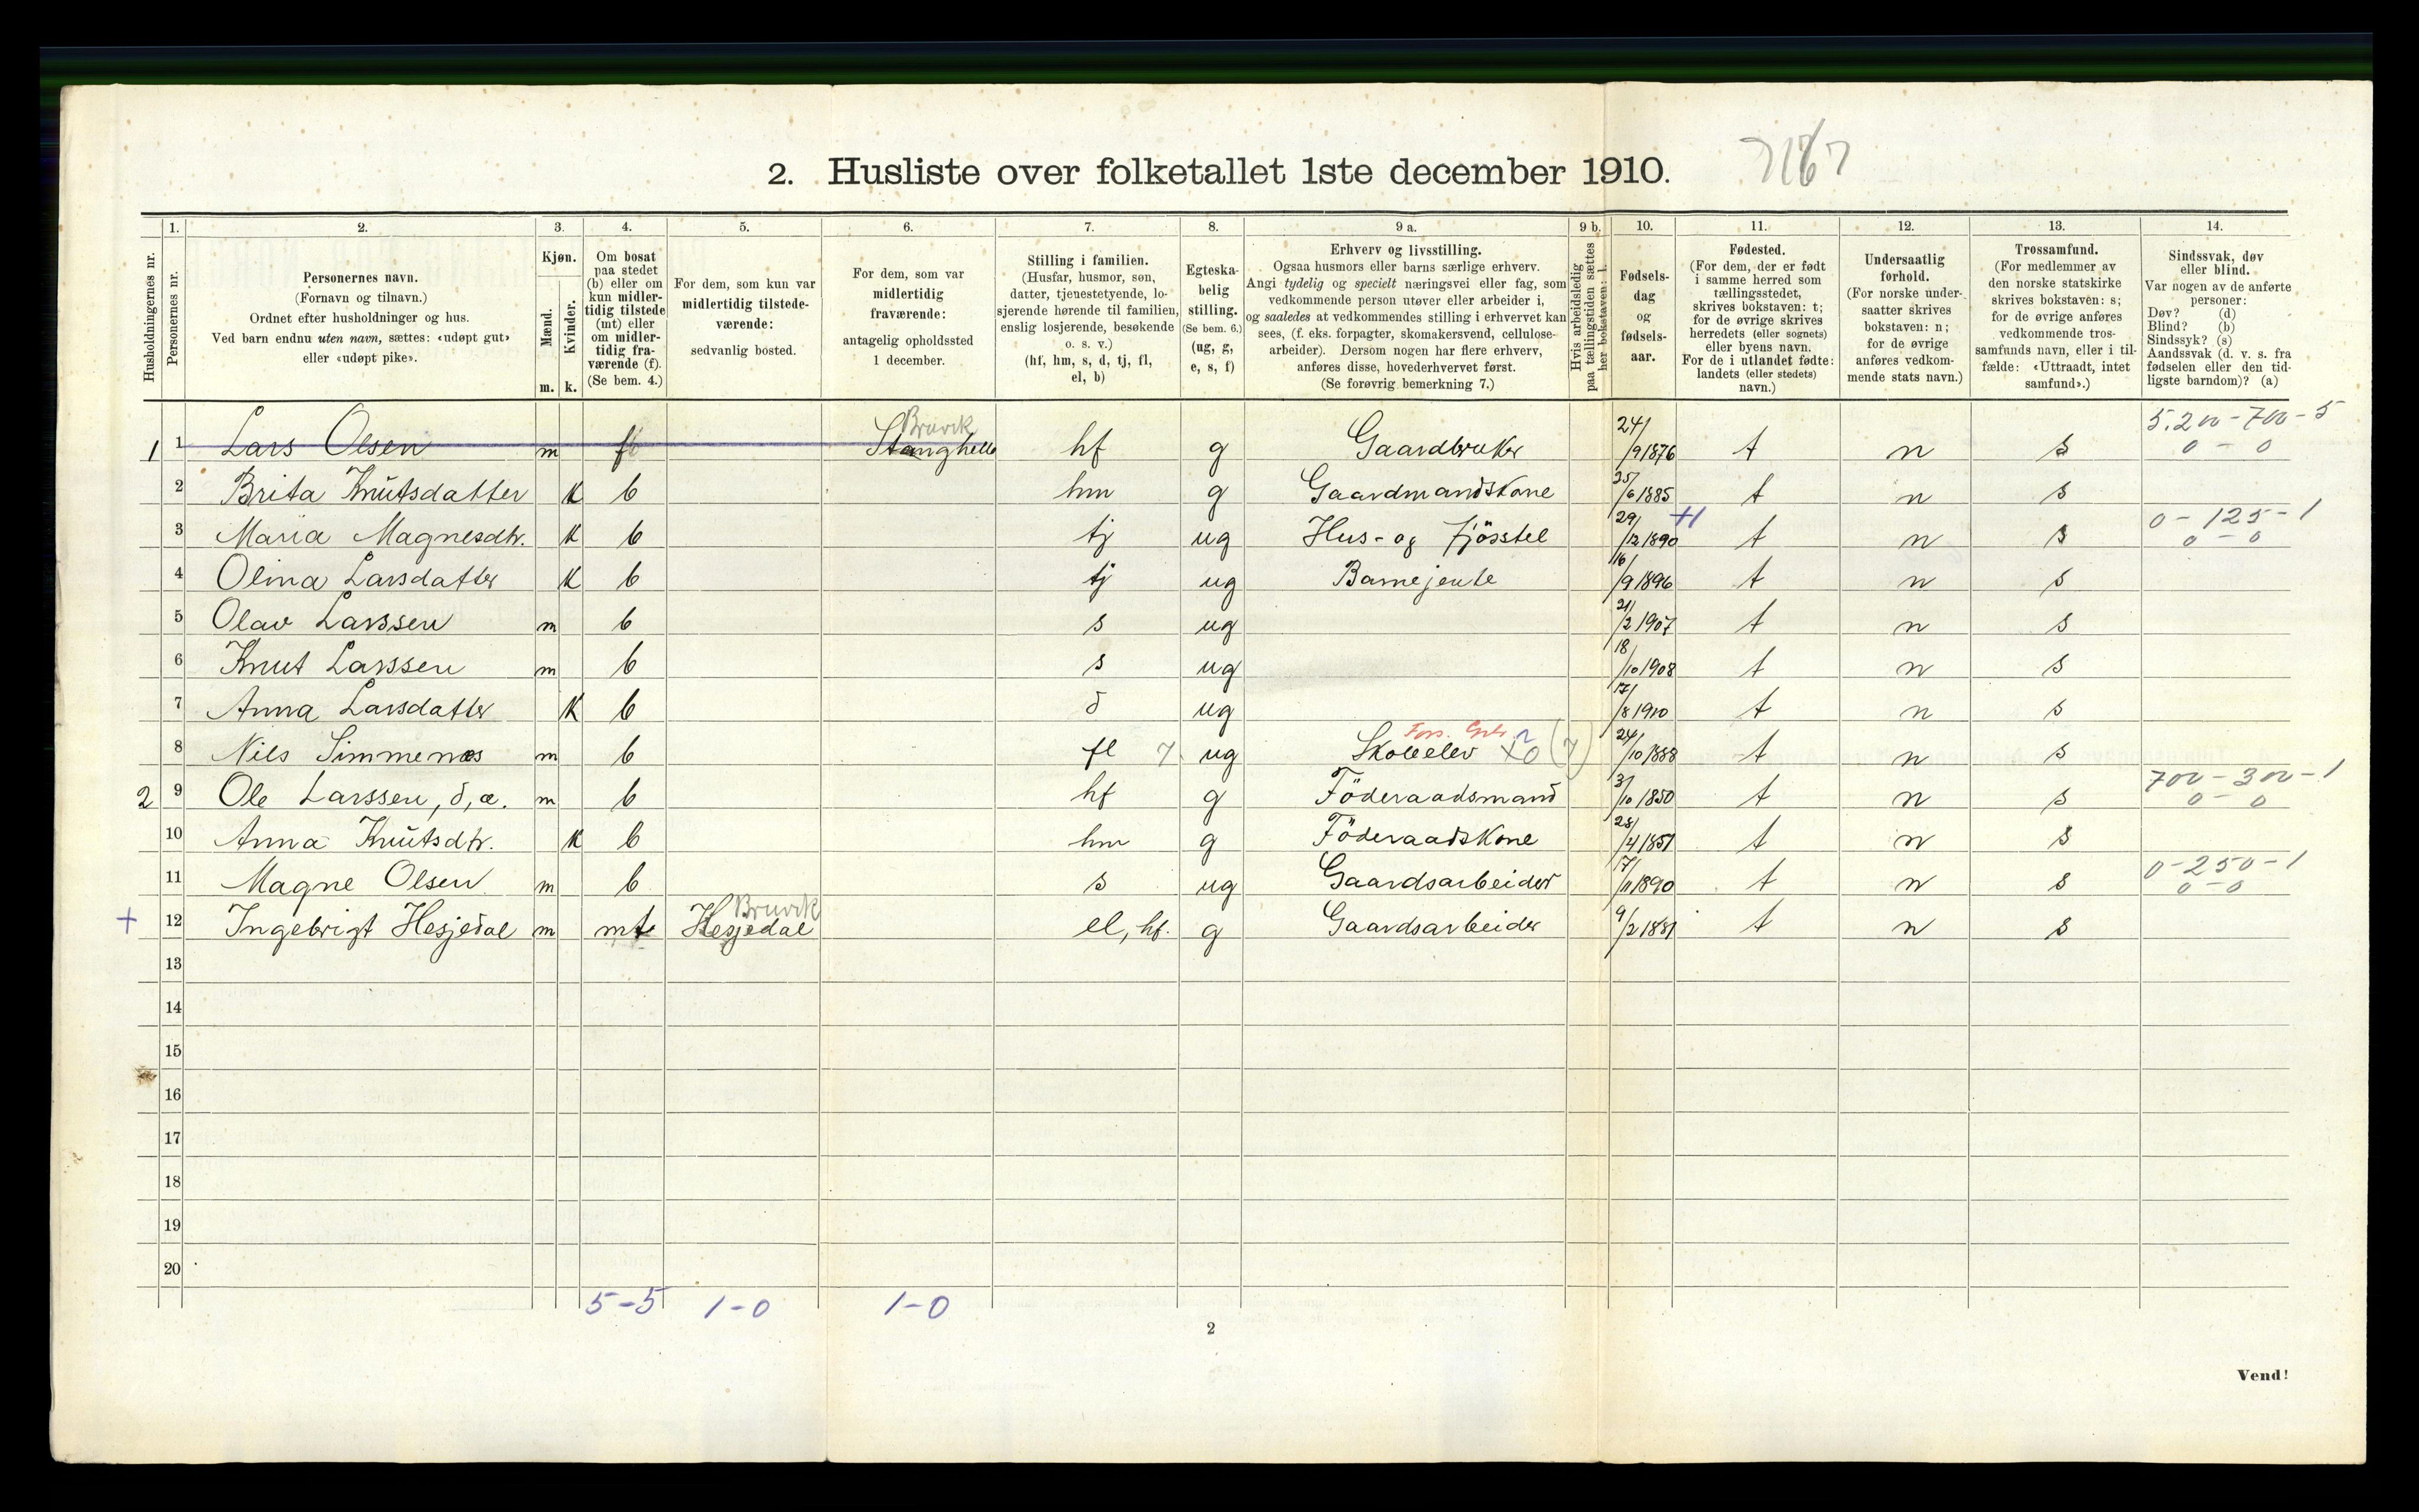 2. Husliste over folketallet 1ste december 1910.
Husholdningernes nr.
1.
Personernes nr.
2.
Personernes navn.
(Fornavn og tilnavn.)
Ordnet efter husholdninger og hus.
Ved barn endnu uten navn, sættes: «udøpt gut»
eller «udøpt pike».
3.
Kjøn.
Mænd.
Kvinder.
m. k.
4.
Om bosat
paa stedet
(b) eller om
kun midler-
tidig tilstede
(mt) eller
om midler-
tidig fra-
værende (f).
(Se bem. 4.)
5.
For dem, som kun var
midlertidig tilstede-
værende:
sedvanlig bosted.
6.
For dem, som var
midlertidig
fraværende:
antagelig opholdssted
1 december.
7.
Stilling i familien.
(Husfar, husmor, søn,
datter, tjenestetyende, lo-
sjerende hørende til familien,
enslig losjerende, besøkende
o. s. v.)
(hf, hm, s, d, tj, fl,
el, b)
8.
Egteska-
belig
stilling.
(Se bem. 6.)
(ug, g,
e, s, f)
9 a.
Erhverv og livsstilling.
Ogsaa husmors eller barns særlige erhverv.
Angi tydelig og specielt næringsvei eller fag, som
vedkommende person utøver eller arbeider i,
og saaledes at vedkommendes stilling i erhvervet kan
sees, (f. eks. forpagter, skomakersvend, cellulose-
arbeider). Dersom nogen har flere erhverv,
anføres disse, hovederhvervet først.
(Se forøvrig bemerkning 7.)
9 b.
Hvis arbeidsledig
paa tællingstiden sættes
her bokstaven: l.
10.
Fødsels-
dag
og
fødsels-
aar.
11.
Fødested.
(For dem, der er født
i samme herred som
tællingsstedet,
skrives bokstaven: t;
for de øvrige skrives
herredets (eller sognets)
eller byens navn.
For de i utlandet fødte:
landets (eller stedets)
navn.)
12.
Undersaatlig
forhold.
(For norske under-
saatter skrives
bokstaven: n;
for de øvrige
anføres vedkom-
mende stats navn.)
13.
Trossamfund.
(For medlemmer av
den norske statskirke
skrives bokstaven: s;
for de øvrige anføres
vedkommende tros-
samfunds navn, eller i til-
fælde: «Uttraadt, intet
samfund».)
14.
Sindssvak, døv
eller blind.
Var nogen av de anførte
personer:
Døv? (d)
Blind? (b)
Sindssyk? (s)
Aandssvak (d. v. s. fra
fødselen eller den tid-
ligste barndom)? (a)
Bruvik 5.200-700-5
1 1 Lars Olsen m f Stanghelle hf g Gaardbruker 24/9 1876 t n s 0-0
2 Brita Knutsdatter k b hm g Gaardmandskone 25/6 1885 t n s
+1 0-125-1
3 Maria Magnesdtr. k b tj ug Hus- og fjösstel 29/12 1890 t n s 0-0
4 Olina Larsdatter k b tj ug Barnejente 16/9 1896 t n s
5 Olav Larssen m b s ug 21/2 1907 t n s
6 Knut Larssen m b s ug 18/10 1908 t n s
7 Anna Larsdatter k b d ug 17/8 1910 t n s
8 Nils Simmenæs m b fl 7 ug Skoleelev X0 (7) 24/10 1888 t n s
700-300-1
2 9 Ole Larssen, d, æ. m b hf g Föderaadsmand 3/10 1850 t n s 0-0
10 Anna Knutsdtr. k b hm g Föderaadskone 28/4 1851 t n s
0-250-1
11 Magne Olsen m b s ug Gaardsarbeider 17/11 1890 t n s 0-0
Bruvik
+ 12 Ingebrigt Hesjedal m mt Hesjedal el, hf. g Gaardsarbeider 9/2 1881 t n s
13
14
15
16
17
18
19
20
5-5 1-0 1-0
2
Vend!